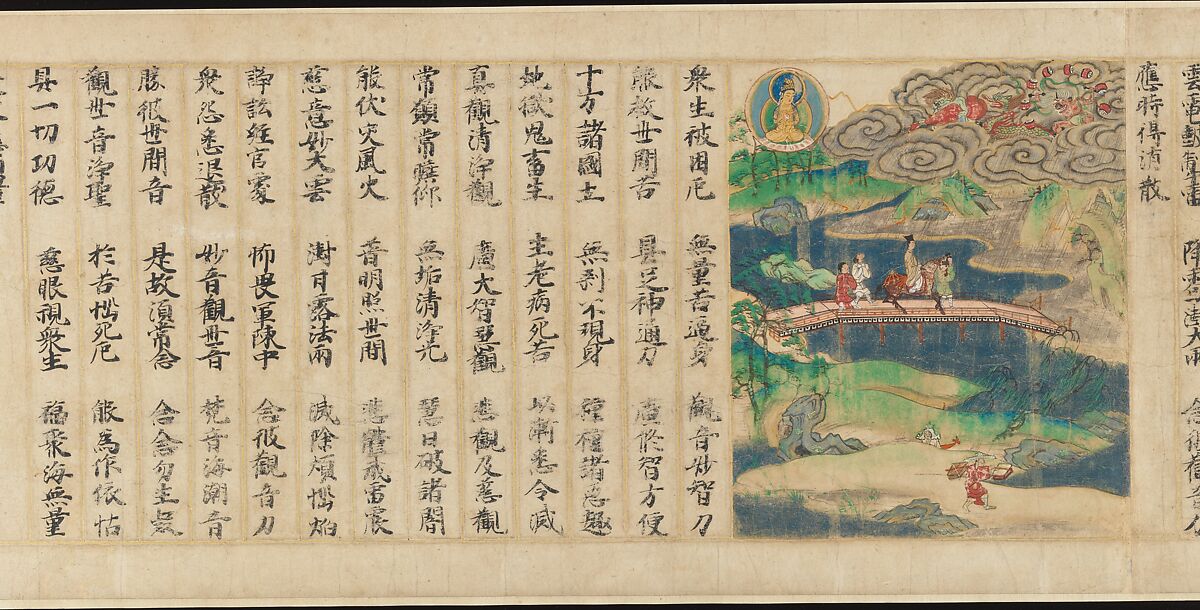 雲雷鼓掣電 降雹澍大雨 念彼觀音力
應時得消散
衆生被困厄 無量苦逼身 觀音妙智力
能救世間苦 具足神通力 廣修智方便
十方諸國土 無刹不現身 種種諸惡趣
地獄鬼畜生 生老病死苦 以漸悉令滅
真觀清淨觀 廣大智慧觀 悲觀及慈觀
常願常瞻仰 無垢清淨光 慧日破諸闇
能伏災風火 普明照世間 悲體戒雷震
慈意妙大雲 澍甘露法雨 滅除煩惱焰
諍訟經官處 怖畏軍陳中 念彼觀音力
衆怨悉退散 妙音觀世音 梵音海潮音
勝彼世間音 是故須常念 念念勿生疑
觀世音淨聖 於苦惱死厄 能為作依怙
具一切功德 慈眼視衆生 福聚海無量